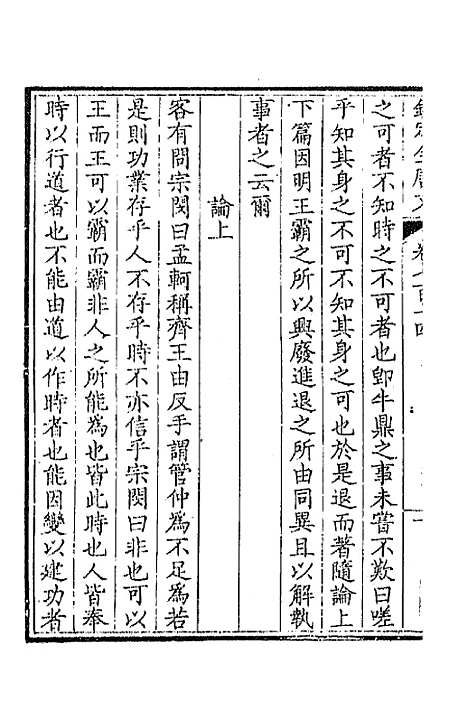 欽定全唐文 卷七百十四
之可者不知時之不可者也卽牛鼎之事未嘗不歎曰嗟
乎知其身之不可不知其身之可也於是退而著隨論上
下篇因明王霸之所以興廢進退之所由同異且以解執
事者之云爾
論上
客有問宗閔曰孟軻稱齊王由反手謂管仲為不足為若
是則功業存乎人不存乎時不亦信乎宗閔曰非也可以
王而王可以霸而霸非人之所能為也皆此時也人皆奉
時以行道者也不能由道以作時者也能因變以建功者